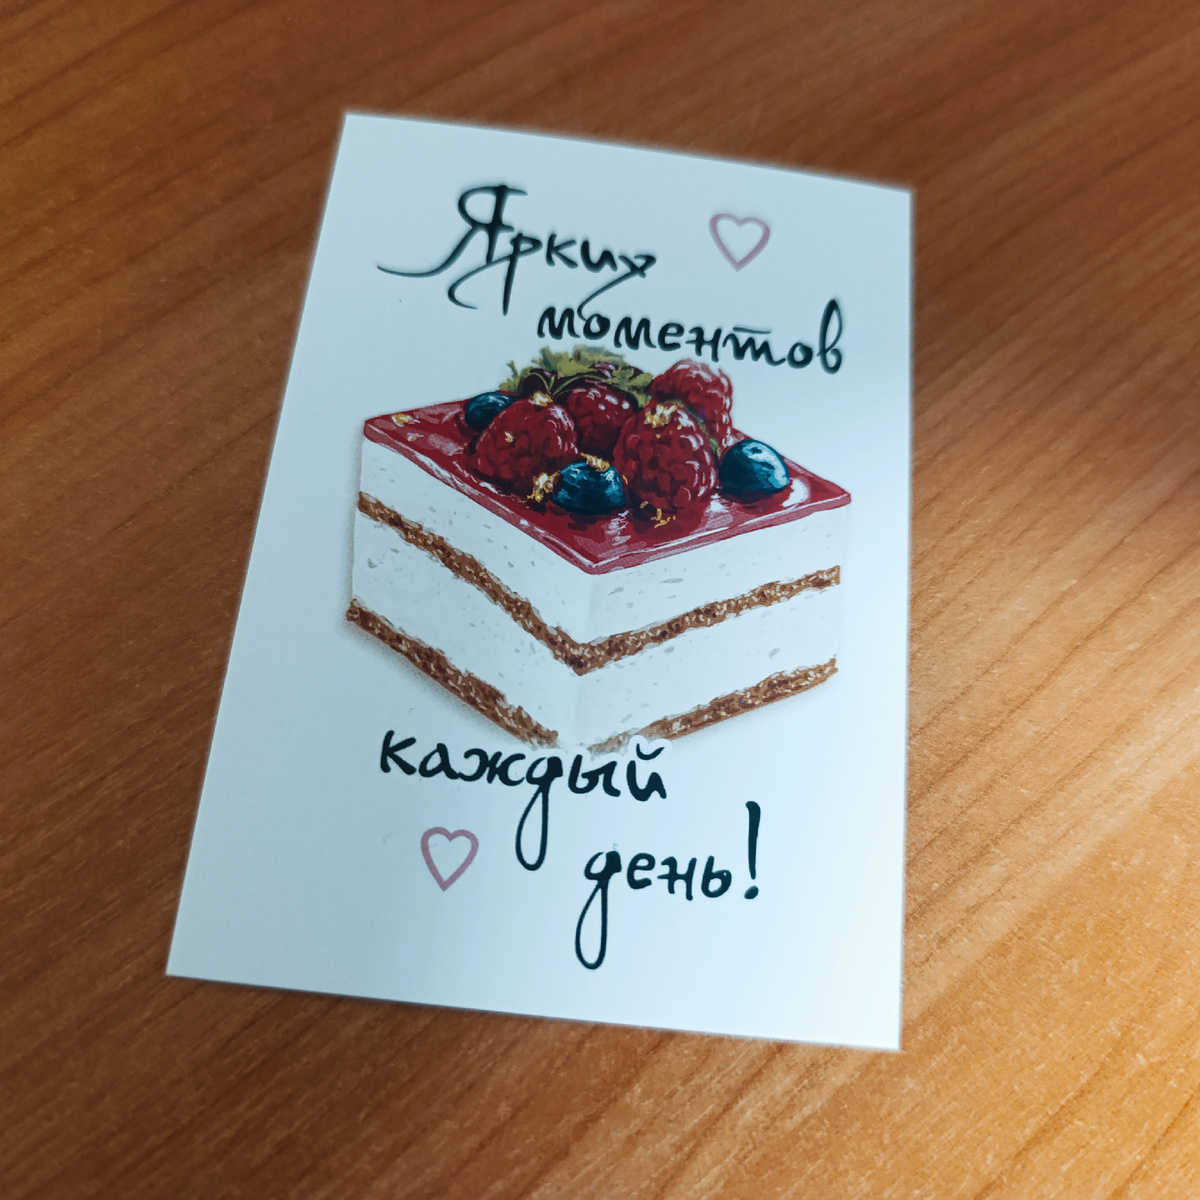 Ярких
моментов
каждый
день!